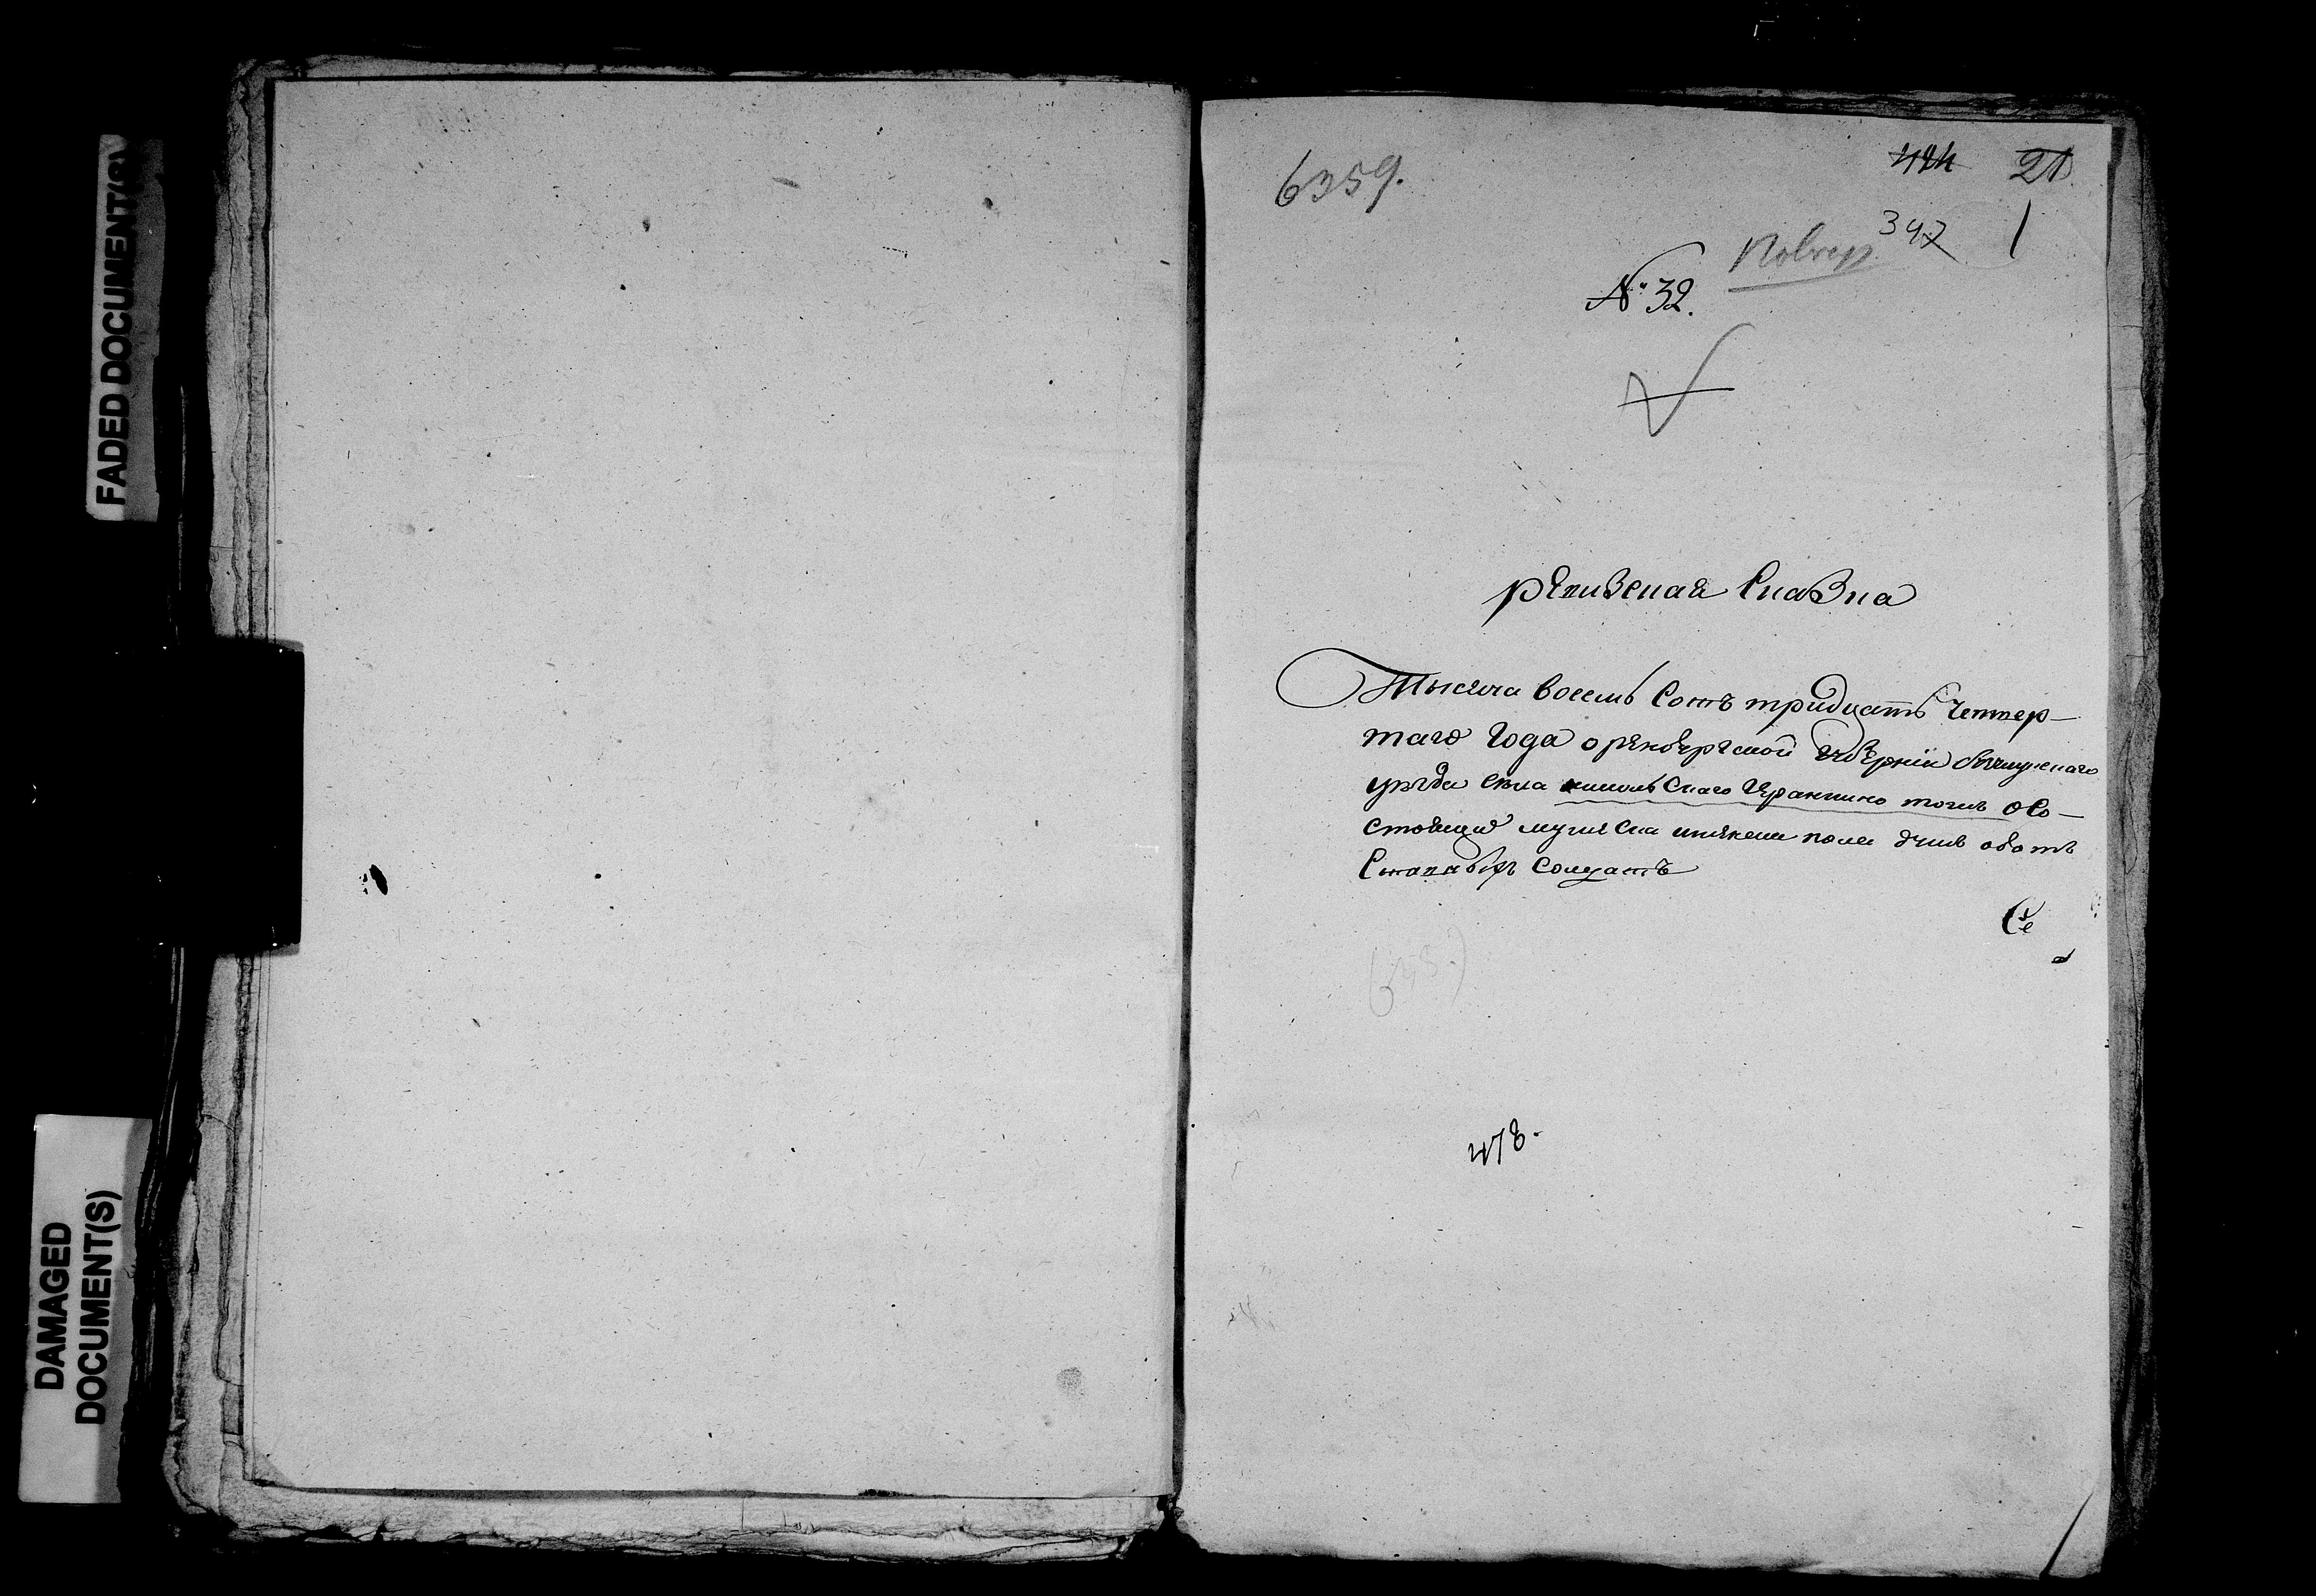 FADED DOCUMENT(S)
DAMAGED
DOCUMENT(S)
6359.
424 21
347 1
Повер
№ 32.
ревизская Сказка
Тысяча восемь Сотъ тридцать Четвер-
таго Года оренбергской Губерніи
уезда села токъ о Со-
стоящихъ мужеска и женска пола душъ
Солдатъ
478.